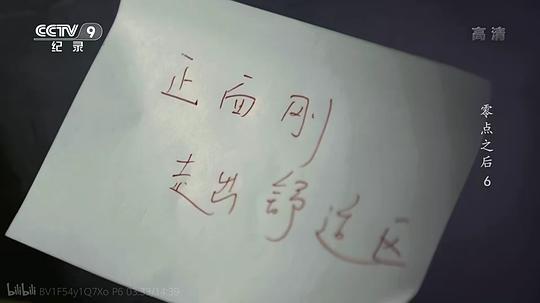 CCTV 9
纪录
高清
正面刚
走出舒适区
零点之后 6
bilibili BV1F54y1Q7Xo P6 03:33/14:39